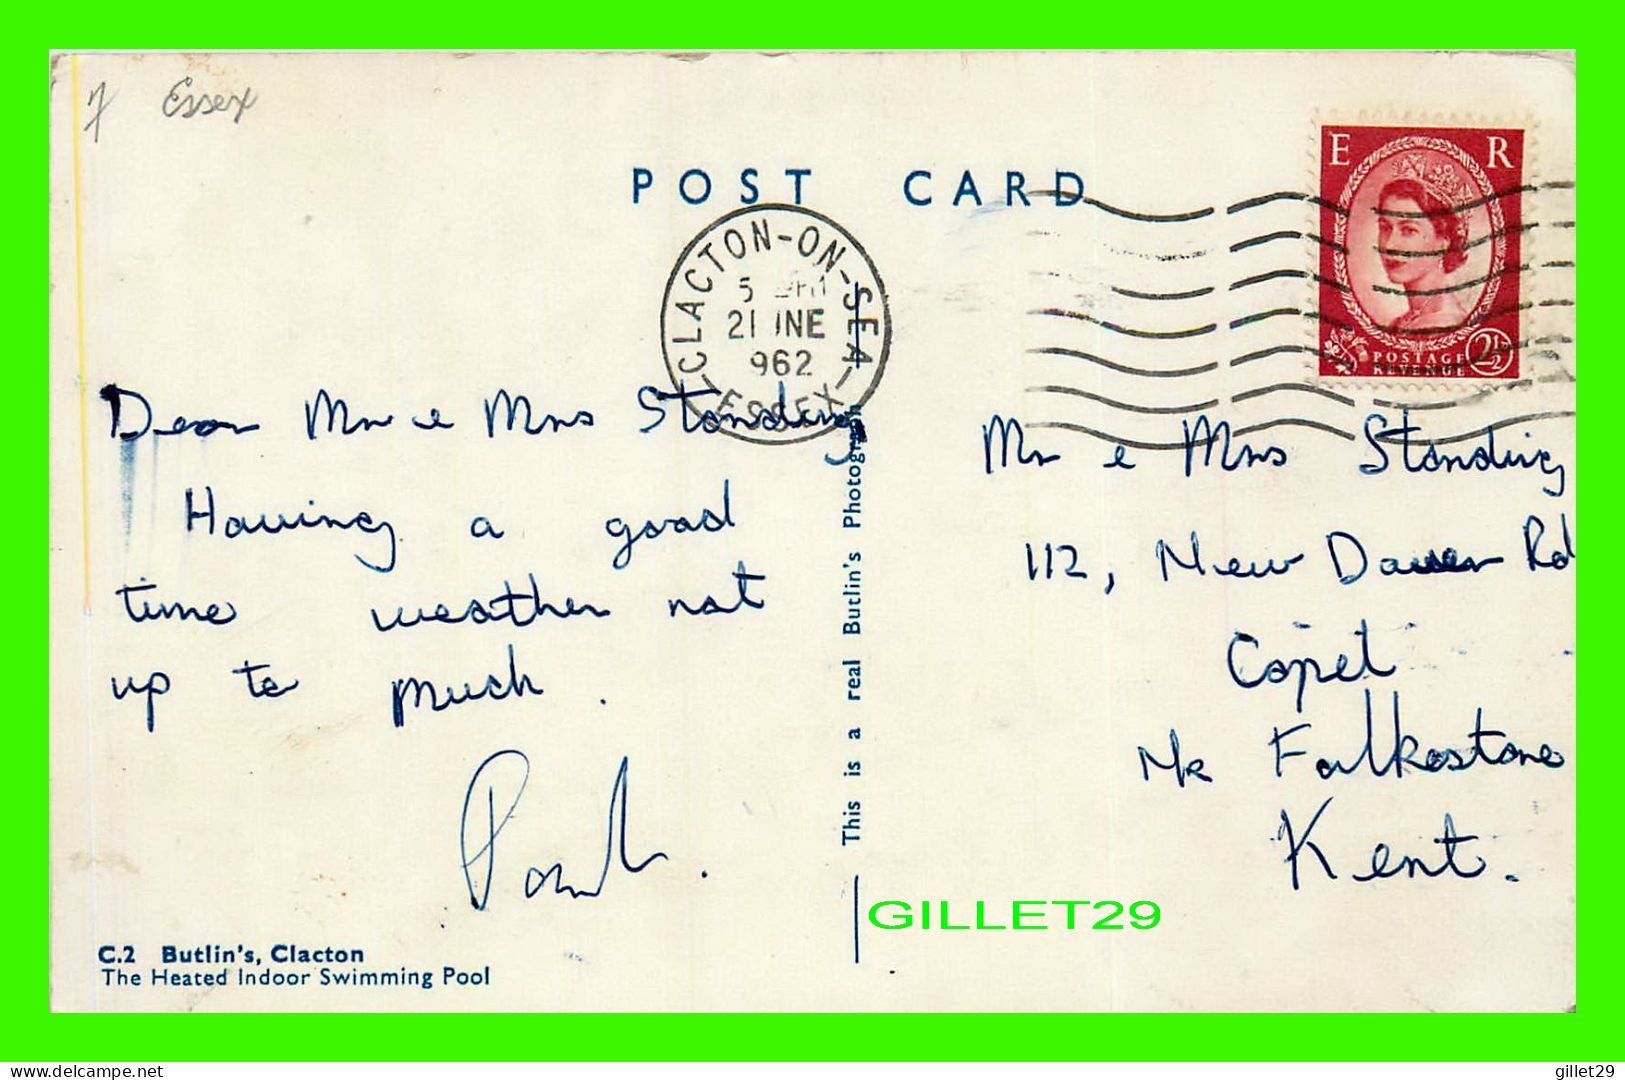 7 Essex
POST CARD
E R
POSTAGE
REVENUE
2½
CLACTON-ON-SEA
5 PM
21 JNE
962
ESSEX
Dear Mr & Mrs Standing
Having a good
time weather not
up to much.
Paul.
C.2 Butlin's, Clacton
The Heated Indoor Swimming Pool
This is a real Butlin's Photograph
Mr & Mrs Standing
112, New Dover Rd
Capel
Nr Folkestone
Kent.
GILLET29
delcampe.net
gillet29